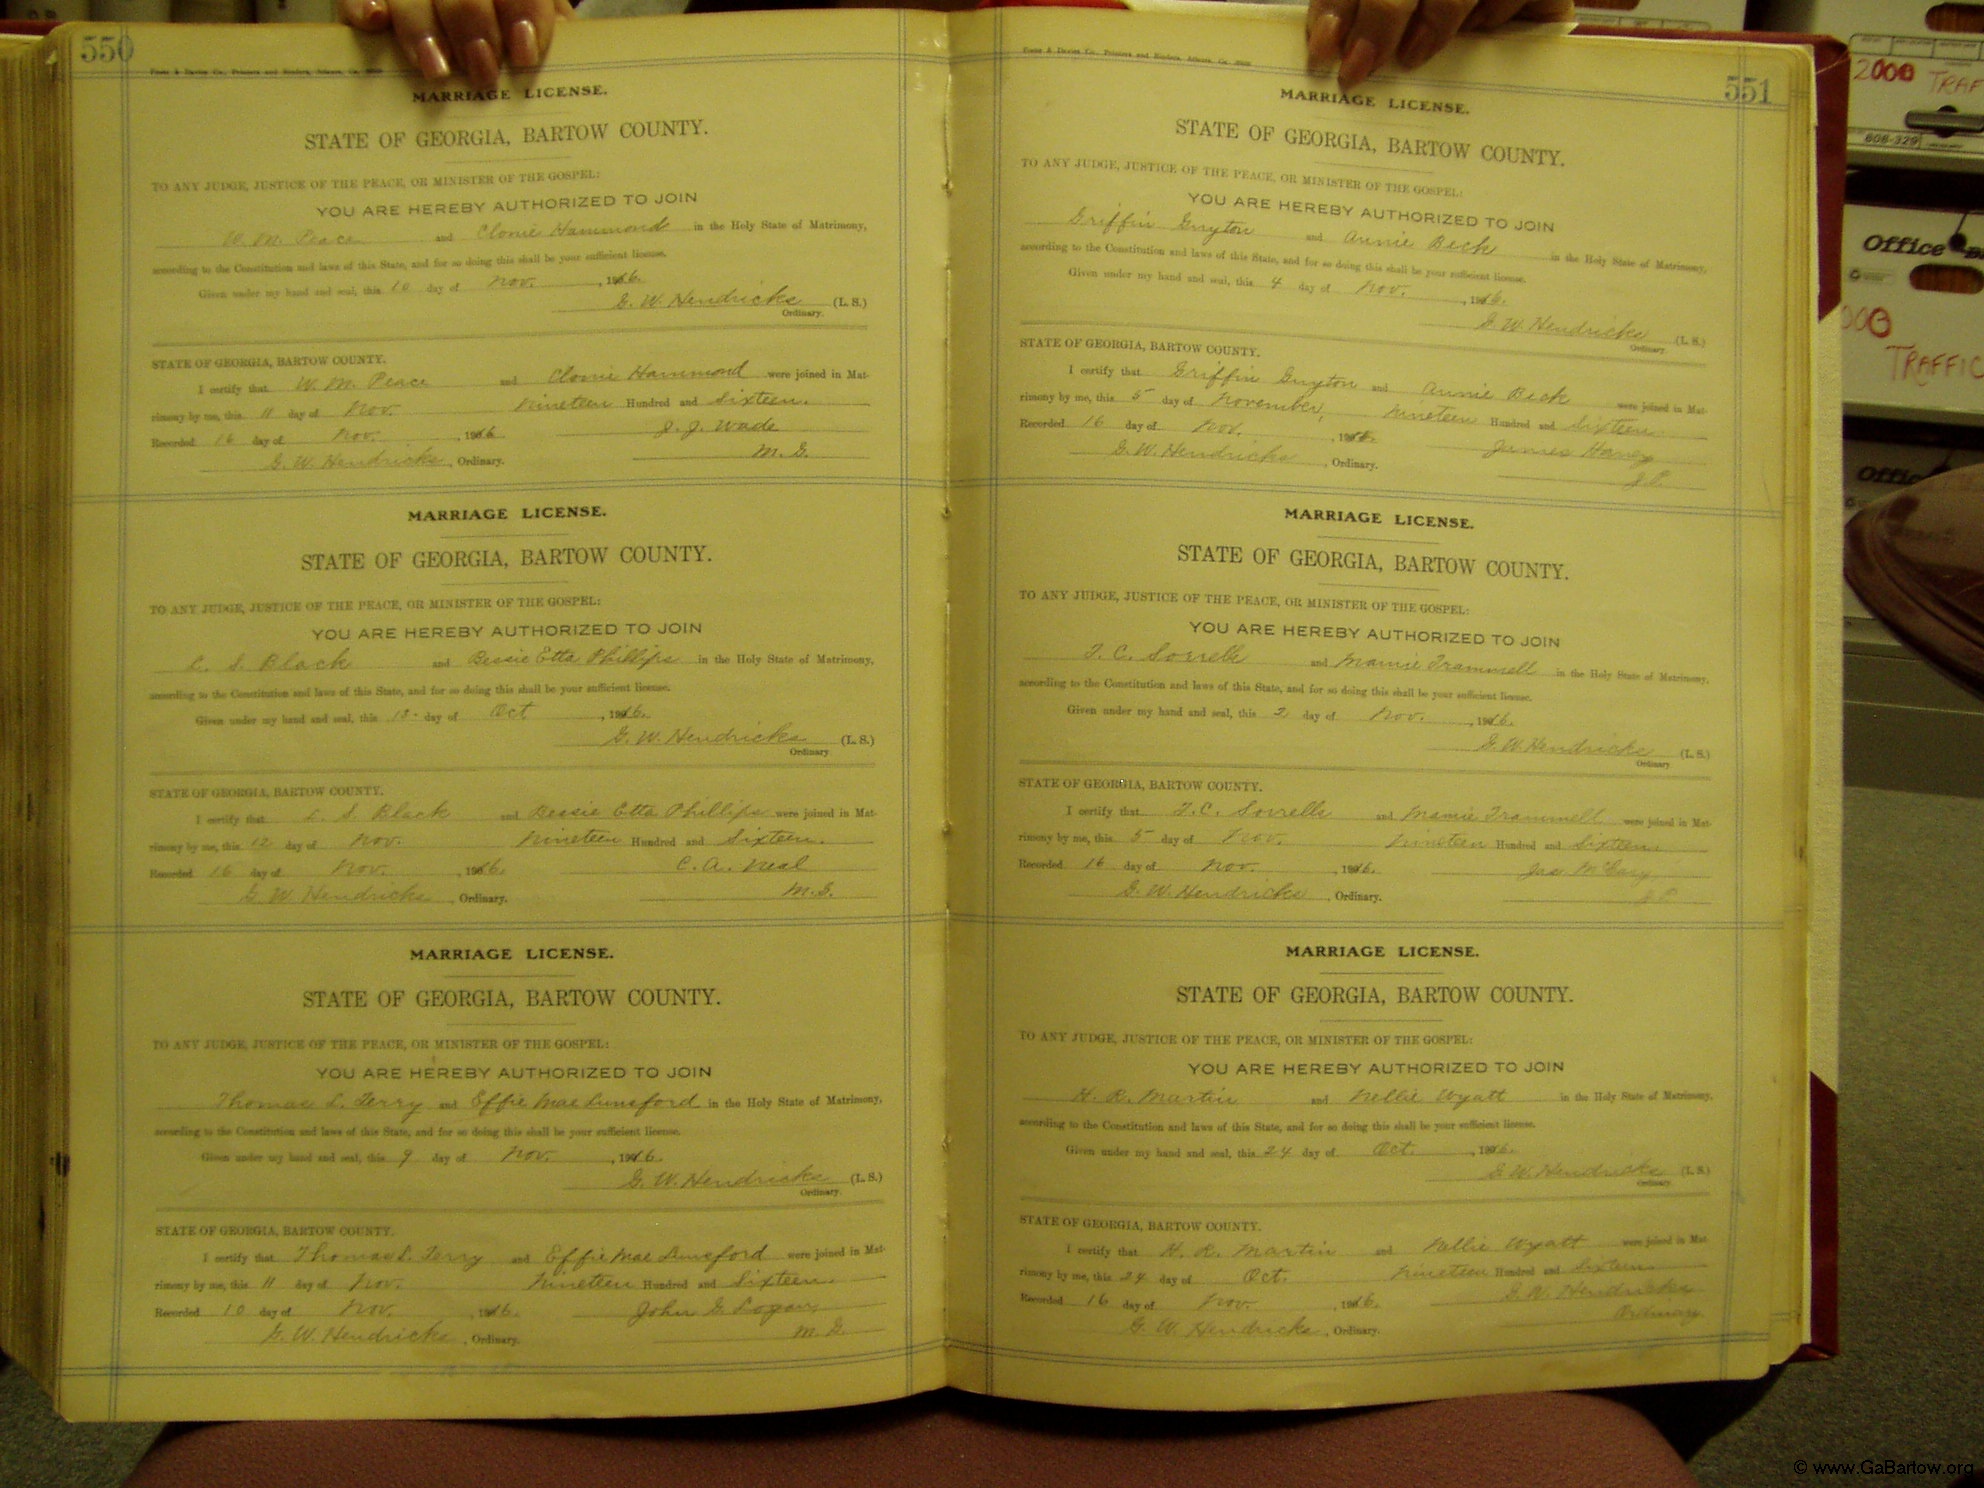 550
MARRIAGE LICENSE.
STATE OF GEORGIA, BARTOW COUNTY.
TO ANY JUDGE, JUSTICE OF THE PEACE, OR MINISTER OF THE GOSPEL:
YOU ARE HEREBY AUTHORIZED TO JOIN
W. M. Peace and Clonie Hammond in the Holy State of Matrimony,
according to the Constitution and laws of this State, and for so doing this shall be your sufficient license.
Given under my hand and seal, this 10 day of Nov. , 1916.
G. W. Hendricks (L. S.)
Ordinary.
STATE OF GEORGIA, BARTOW COUNTY.
I certify that W. M. Peace and Clonie Hammond were joined in Mat-
rimony by me, this 11 day of Nov. Nineteen Hundred and Sixteen.
Recorded 16 day of Nov. , 1916. J. J. Wade
G. W. Hendricks , Ordinary. M. G.
MARRIAGE LICENSE.
STATE OF GEORGIA, BARTOW COUNTY.
TO ANY JUDGE, JUSTICE OF THE PEACE, OR MINISTER OF THE GOSPEL:
YOU ARE HEREBY AUTHORIZED TO JOIN
S. Black and Bessie Etta Phillips in the Holy State of Matrimony,
according to the Constitution and laws of this State, and for so doing this shall be your sufficient license.
Given under my hand and seal, this day of Oct , 1916.
G. W. Hendricks (L. S.)
Ordinary
STATE OF GEORGIA, BARTOW COUNTY.
I certify that S. Black and Bessie Etta Phillips were joined in Mat-
rimony by me, this 12 day of Nov. Nineteen Hundred and Sixteen.
Recorded 16 day of Nov. , 1916. C. A. Neal
G. W. Hendricks , Ordinary. M. G.
MARRIAGE LICENSE.
STATE OF GEORGIA, BARTOW COUNTY.
TO ANY JUDGE, JUSTICE OF THE PEACE, OR MINISTER OF THE GOSPEL:
YOU ARE HEREBY AUTHORIZED TO JOIN
Thomas L. Terry and Effie Mae Lunsford in the Holy State of Matrimony,
according to the Constitution and laws of this State, and for so doing this shall be your sufficient license.
Given under my hand and seal, this 9 day of Nov. , 1916.
G. W. Hendricks (L. S.)
Ordinary.
STATE OF GEORGIA, BARTOW COUNTY.
I certify that Thomas L. Terry and Effie Mae Lunsford were joined in Mat-
rimony by me, this 11 day of Nov. Nineteen Hundred and Sixteen.
Recorded 16 day of Nov. , 1916. John G. Logan
G. W. Hendricks , Ordinary. M. G.
551
MARRIAGE LICENSE.
STATE OF GEORGIA, BARTOW COUNTY.
TO ANY JUDGE, JUSTICE OF THE PEACE, OR MINISTER OF THE GOSPEL:
YOU ARE HEREBY AUTHORIZED TO JOIN
Griffin Guyton and Annie Beck in the Holy State of Matrimony,
according to the Constitution and laws of this State, and for so doing this shall be your sufficient license.
Given under my hand and seal, this 4 day of Nov. , 1916.
G. W. Hendricks (L. S.)
Ordinary.
STATE OF GEORGIA, BARTOW COUNTY.
I certify that Griffin Guyton and Annie Beck were joined in Mat-
rimony by me, this 5 day of November, Nineteen Hundred and Sixteen
Recorded 16 day of Nov. , 1916. James Haney
G. W. Hendricks , Ordinary. J. P.
MARRIAGE LICENSE.
STATE OF GEORGIA, BARTOW COUNTY.
TO ANY JUDGE, JUSTICE OF THE PEACE, OR MINISTER OF THE GOSPEL:
YOU ARE HEREBY AUTHORIZED TO JOIN
T. C. Sorrells and Mamie Trammell in the Holy State of Matrimony,
according to the Constitution and laws of this State, and for so doing this shall be your sufficient license.
Given under my hand and seal, this 2 day of Nov. , 1916.
G. W. Hendricks (L. S.)
Ordinary
STATE OF GEORGIA, BARTOW COUNTY.
I certify that T. C. Sorrells and Mamie Trammell were joined in Mat-
rimony by me, this 5 day of Nov. Nineteen Hundred and Sixteen
Recorded 16 day of Nov. , 1916. Jas
G. W. Hendricks , Ordinary. J. P.
MARRIAGE LICENSE.
STATE OF GEORGIA, BARTOW COUNTY.
TO ANY JUDGE, JUSTICE OF THE PEACE, OR MINISTER OF THE GOSPEL:
YOU ARE HEREBY AUTHORIZED TO JOIN
H. R. Martin and Nellie Wyatt in the Holy State of Matrimony,
according to the Constitution and laws of this State, and for so doing this shall be your sufficient license.
Given under my hand and seal, this 24 day of Oct. , 1916.
G. W. Hendricks (L. S.)
Ordinary.
STATE OF GEORGIA, BARTOW COUNTY.
I certify that H. R. Martin and Nellie Wyatt were joined in Mat-
rimony by me, this 24 day of Oct. Nineteen Hundred and Sixteen
Recorded 16 day of Nov. , 1916. G. W. Hendricks
G. W. Hendricks , Ordinary. Ordinary
2000 TRAF
606-329
Office
TRAFFIC
Offic
© www.GaBartow.org